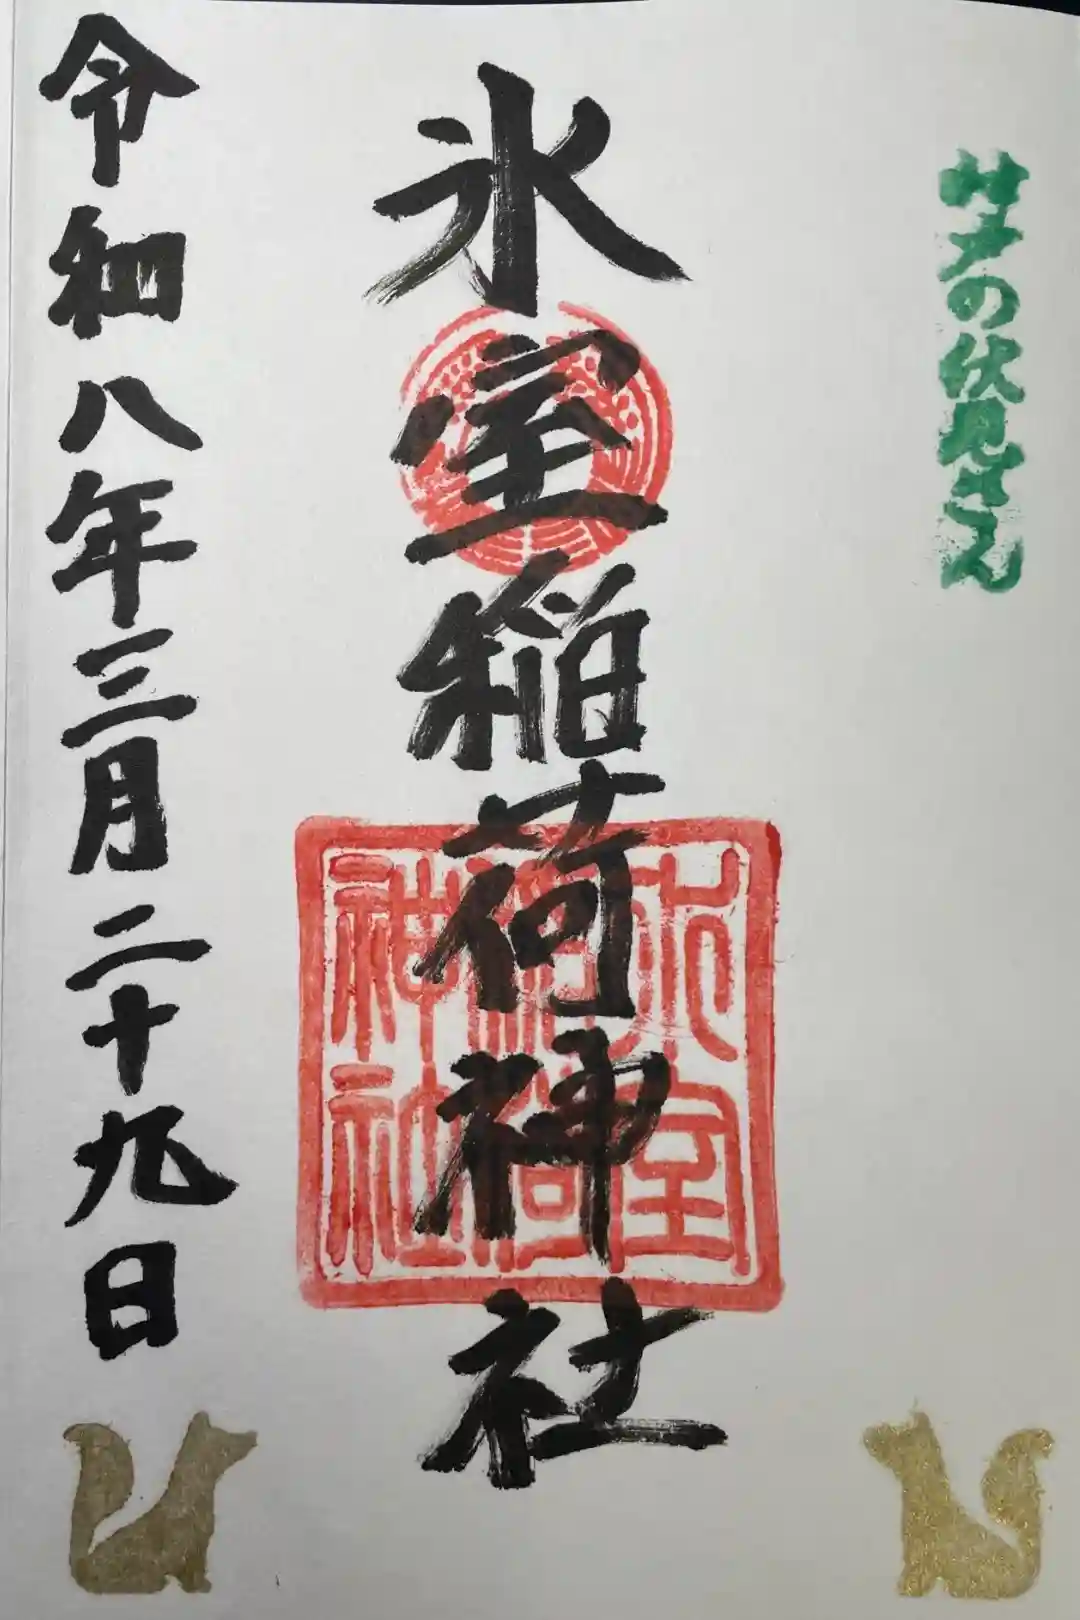 の伏見さん
氷室稲荷神社
氷室
稲荷
神社
令和八年三月二十九日